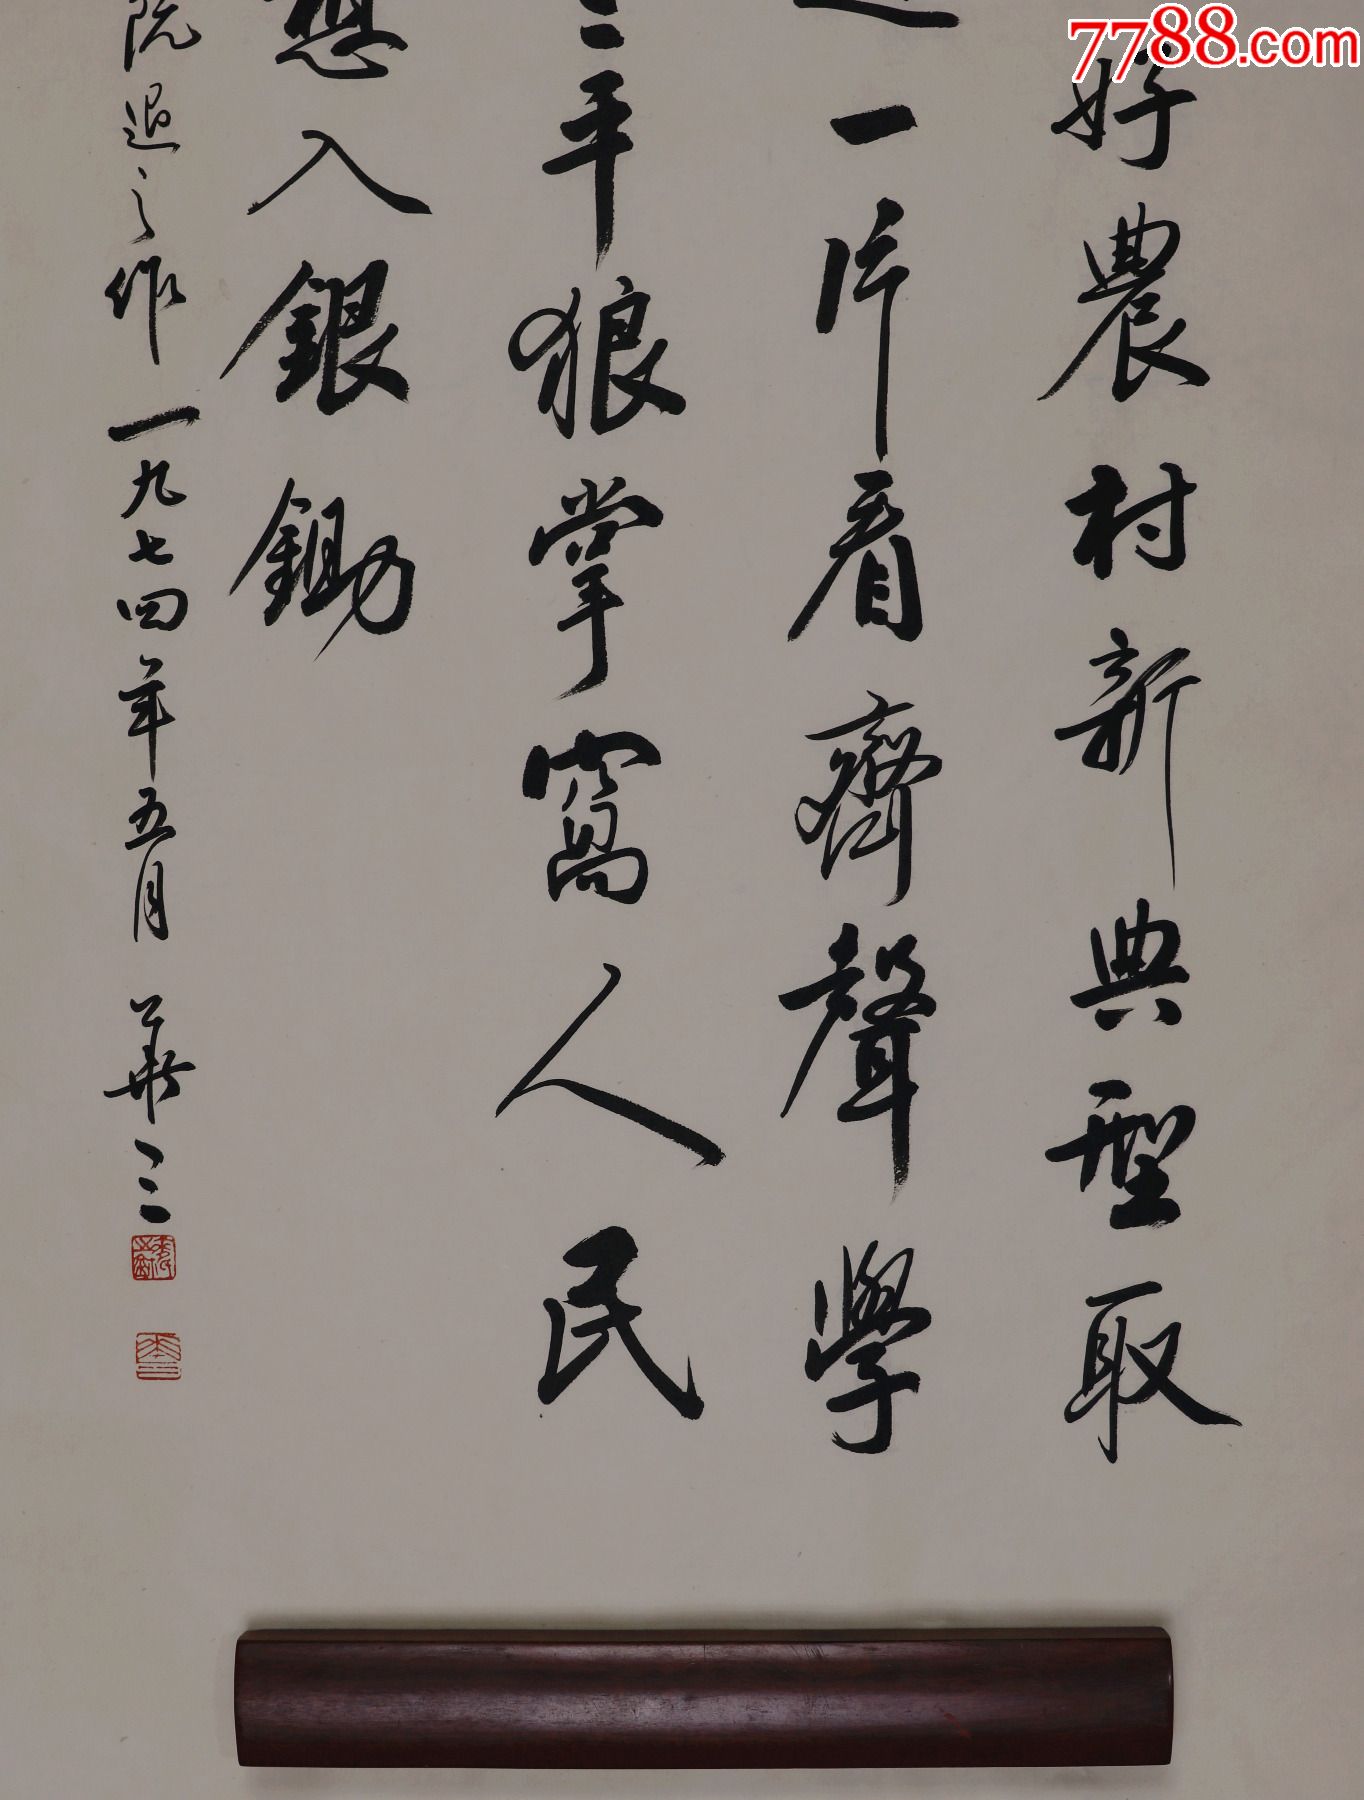 7788.com
好農村新典型取
一片看齊聲學
三平狼掌窩人民
想入銀鋤
阮退之作一九七四年五月 華三